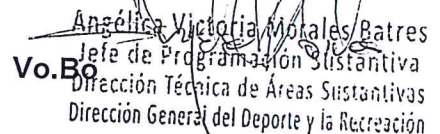 Angélica Victoria Morales Batres
Jefe de Programación Sustantiva
Vo.Bo
Dirección Técnica de Áreas Sustantivas
Dirección General del Deporte y la Recreación